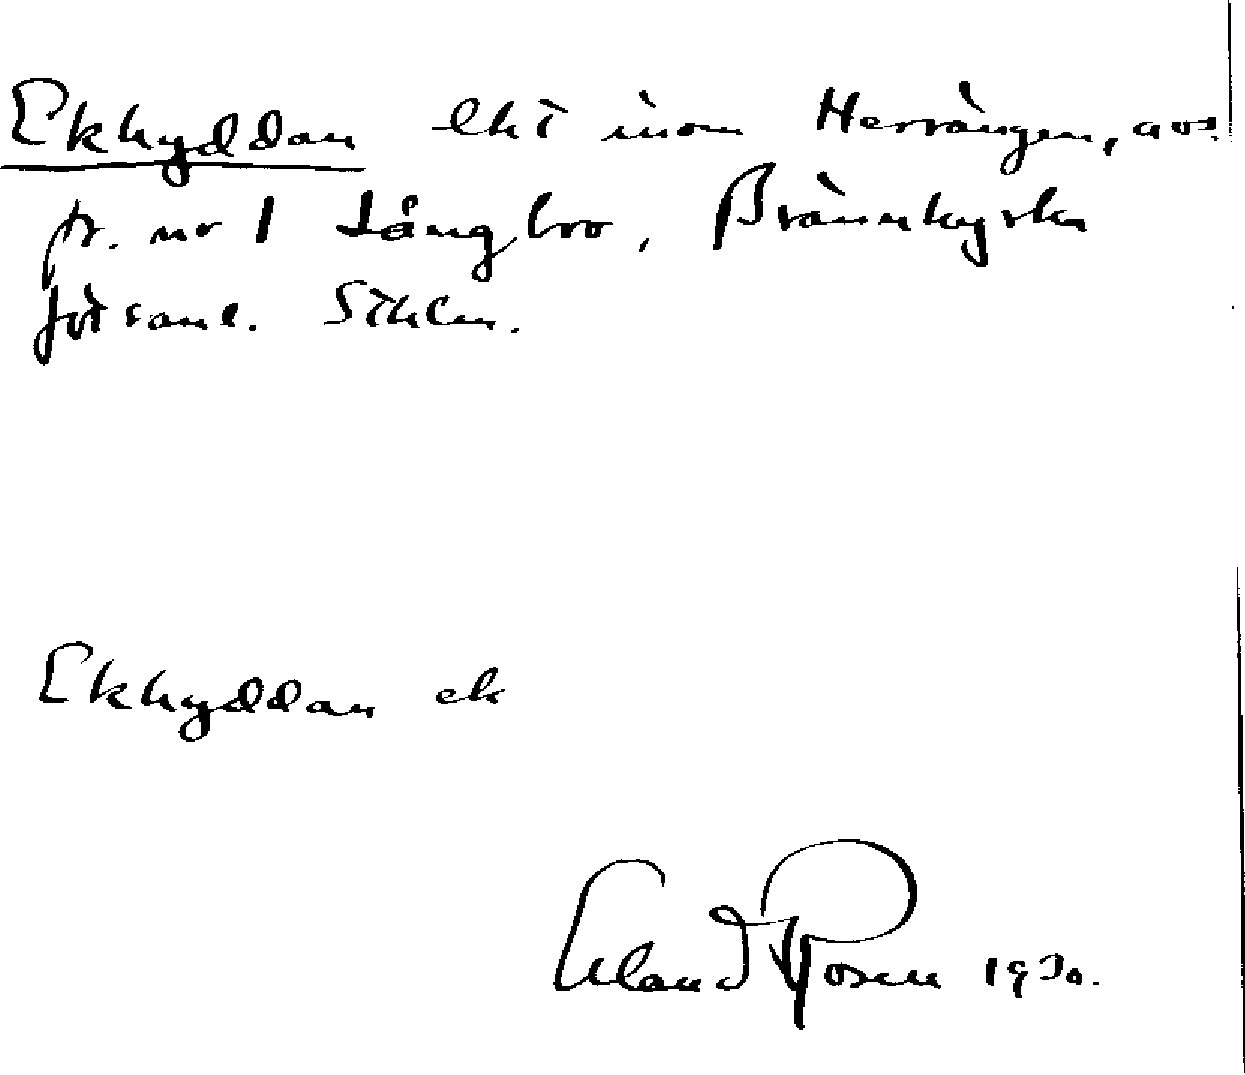 Ekhyddan lht inom Herrängen, avs.
fr. nr 1 Långbro, Brännkyrka
förs aml. Sthlm.
Ekhyddan ek
Erland Rosell 1930.